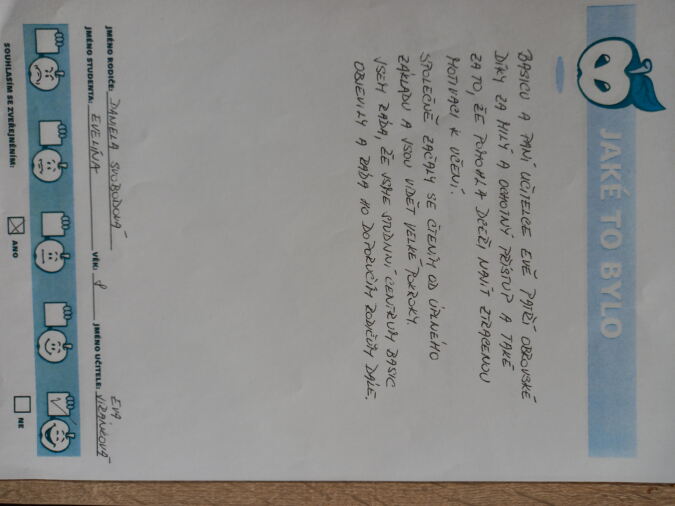 JAKÉ TO BYLO
BASICU A PANÍ UČITELCE EVĚ PATŘÍ OBROVSKÉ
DÍKY ZA MILÝ A OCHOTNÝ PŘÍSTUP A TAKÉ
ZA TO, ŽE POMOHLA DCEŘI NAJÍT ZTRACENOU
MOTIVACI K UČENÍ.
SPOLEČNĚ ZAČALY SE ČTENÍM OD ÚPLNÉHO
ZÁKLADU A JSOU VIDĚT VELKÉ POKROKY.
JSEM RÁDA, ŽE JSME STUDIJNÍ CENTRUM BASIC
OBJEVILY A RÁDA HO DOPORUČÍM RODIČŮM DÁLE.
JMÉNO RODIČE: DANIELA SVOBODOVÁ
JMÉNO STUDENTA: EVELÍNA VĚK: 8 JMÉNO UČITELE: EVA
SOUHLASÍM SE ZVEŘEJNĚNÍM: ANO NE